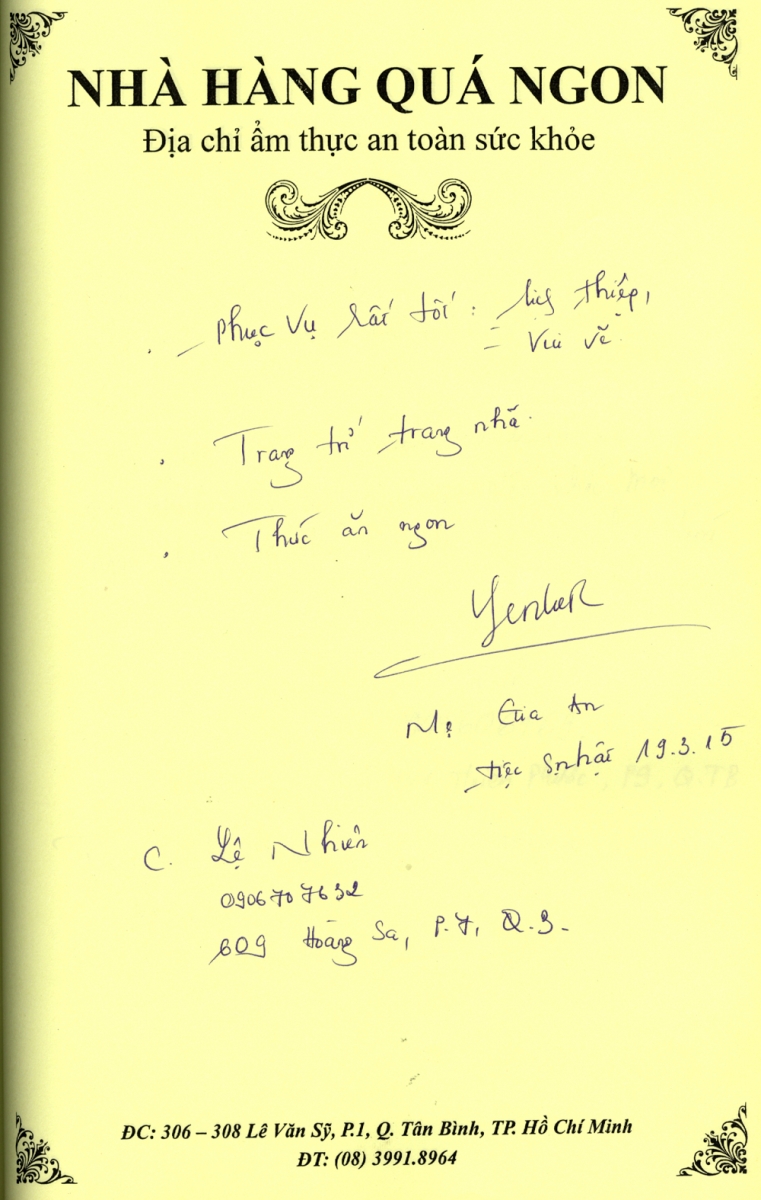 NHÀ HÀNG QUÁ NGON
Địa chỉ ẩm thực an toàn sức khỏe
- Phục vụ rất tốt: lịch thiệp,
- Vui vẽ
Trang trí trang nhã.
Thức ăn ngon
Mẹ Gia An
tiệc Snhật 19.3.15
C. Lệ Nhiên
0906707632
609 Hoàng Sa, P.7, Q.3.
ĐC: 306 – 308 Lê Văn Sỹ, P.1, Q. Tân Bình, TP. Hồ Chí Minh
ĐT: (08) 3991.8964